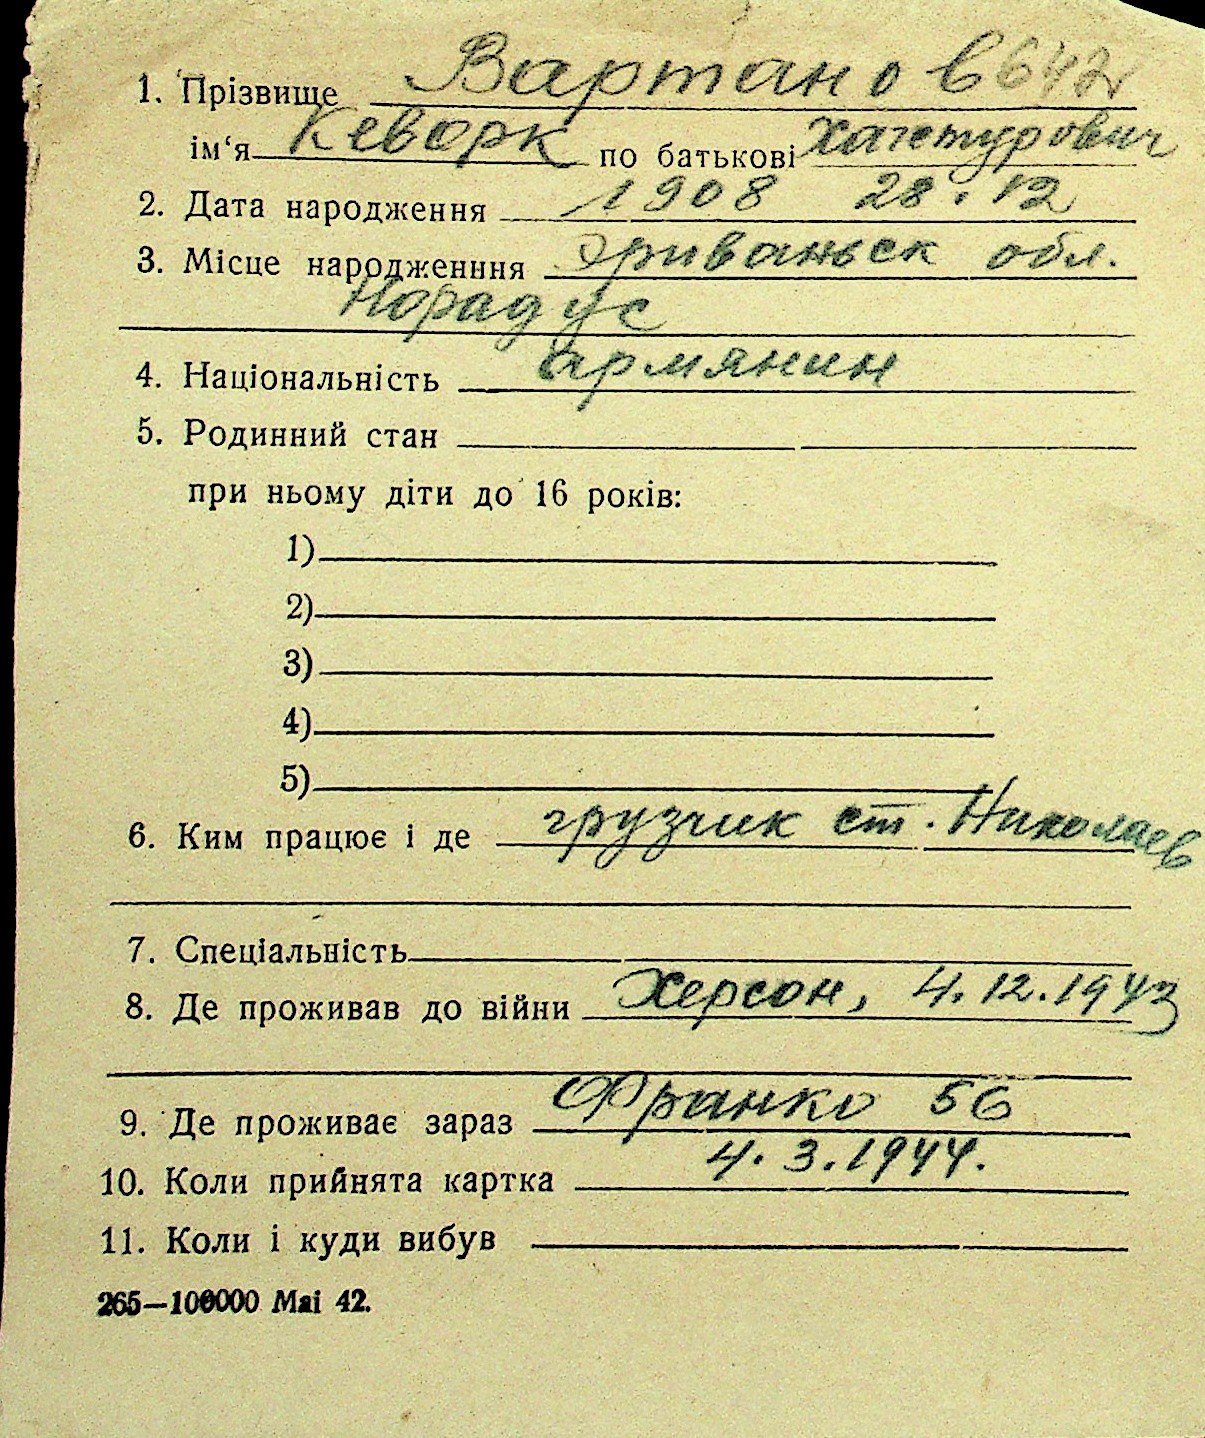 1. Прізвище Вартанов 642
ім'я Кеворк по батькові Хагетурович
2. Дата народження 1908 28.12
3. Місце народженння Эриваньск обл.
Норадус
4. Національність армянин
5. Родинний стан
при ньому діти до 16 років:
1)
2)
3)
4)
5)
6. Ким працює і де грузчик ст. Николаев
7. Спеціальність
8. Де проживав до війни Херсон, 4.12.1943
9. Де проживає зараз Франко 56
10. Коли прийнята картка 4.3.1944.
11. Коли і куди вибув
265—100000 Маі 42.